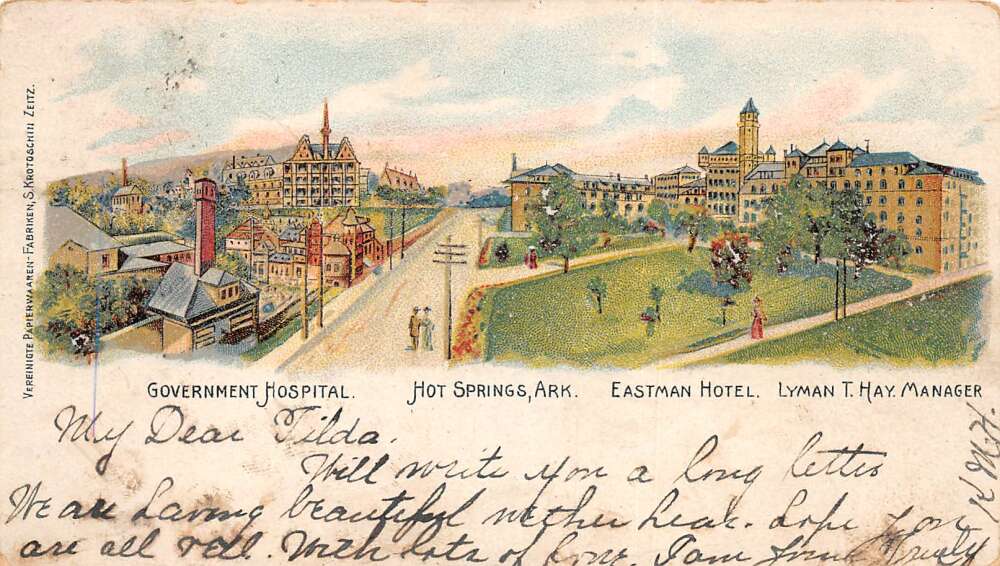 VEREINIGTE PAPIERWAAREN-FABRIKEN, S. KROTOSCHIN ZEITZ.
GOVERNMENT HOSPITAL. HOT SPRINGS, ARK. EASTMAN HOTEL. LYMAN T. HAY. MANAGER
My Dear Tilda.
Will write you a long letter
We are having beautiful wether hear. hope you
are all well. With lots of love. I am yours Truely